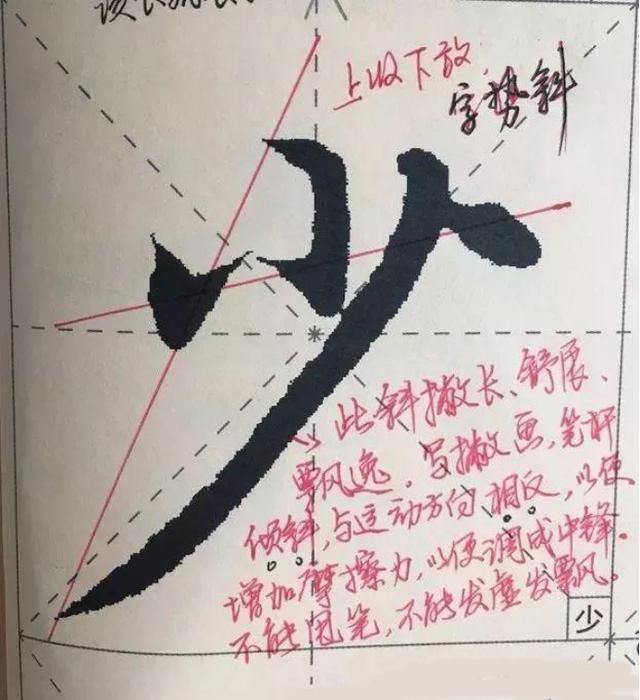 上收下放
字势斜
少
此斜撇长、舒展、
飘逸。写撇画,笔杆
倾斜,与运动方向相反,以便
增加摩擦力,以便调成中锋.
不能甩笔,不能发虚发飘。
少